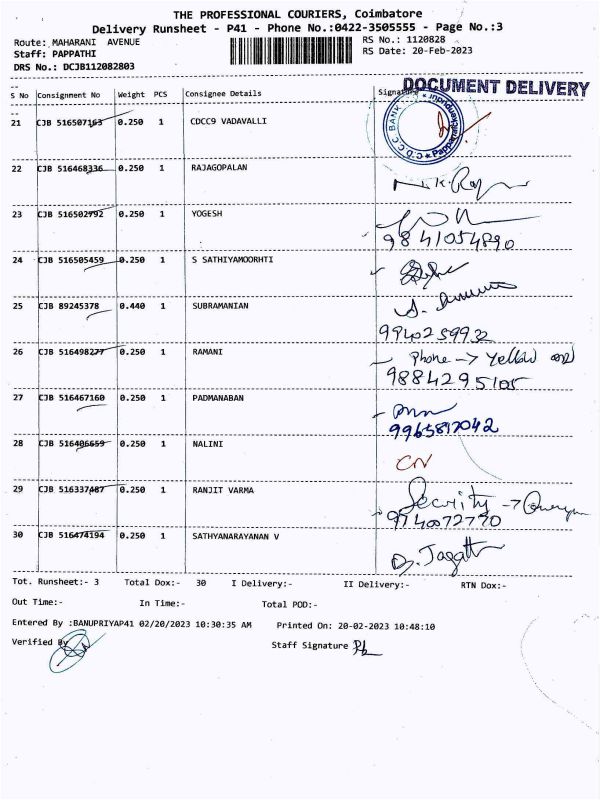 THE PROFESSIONAL COURIERS, Coimbatore
Delivery Runsheet - P41 - Phone No.:0422-3505555 - Page No.:3
Route: MAHARANI AVENUE RS No.: 1120828
Staff: PAPPATHI RS Date: 20-Feb-2023
DRS No.: DCJB112082803
DOCUMENT DELIVERY
S No Consignment No Weight PCS Consignee Details Signature
21 CJB 516507163 0.250 1 CDCC9 VADAVALLI
C.D.C.C BANK
22 CJB 516468336 0.250 1 RAJAGOPALAN
23 CJB 516502792 0.250 1 YOGESH
9841054890
24 CJB 516505459 0.250 1 S SATHIYAMOORHTI
25 CJB 89245378 0.440 1 SUBRAMANIAN
9940259932
26 CJB 516498277 0.250 1 RAMANI Phone -> Yellow
9884295105
27 CJB 516467160 0.250 1 PADMANABAN
9965817042
28 CJB 516406659 0.250 1 NALINI CN
29 CJB 516337487 0.250 1 RANJIT VARMA Security ->
9740072770
30 CJB 516474194 0.250 1 SATHYANARAYANAN V
Tot. Runsheet:- 3 Total Dox:- 30 I Delivery:- II Delivery:- RTN Dox:-
Out Time:- In Time:- Total POD:-
Entered By :BANUPRIYAP41 02/20/2023 10:30:35 AM Printed On: 20-02-2023 10:48:10
Verified By Staff Signature